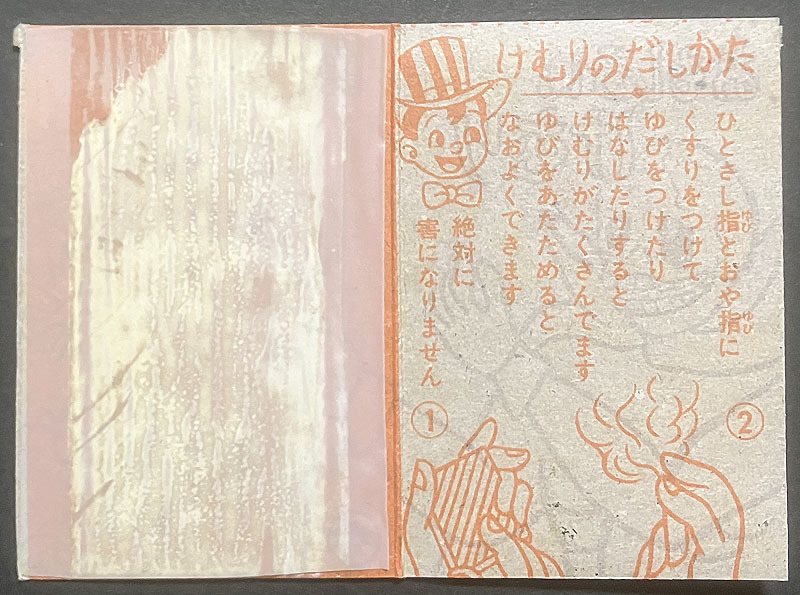 けむりのだしかた
ひとさし指とおや指に
くすりをつけて
ゆびをつけたり
はなしたりすると
けむりがたくさんでます
ゆびをあたためると
なおよくできます
絶対に
害になりません
①
②